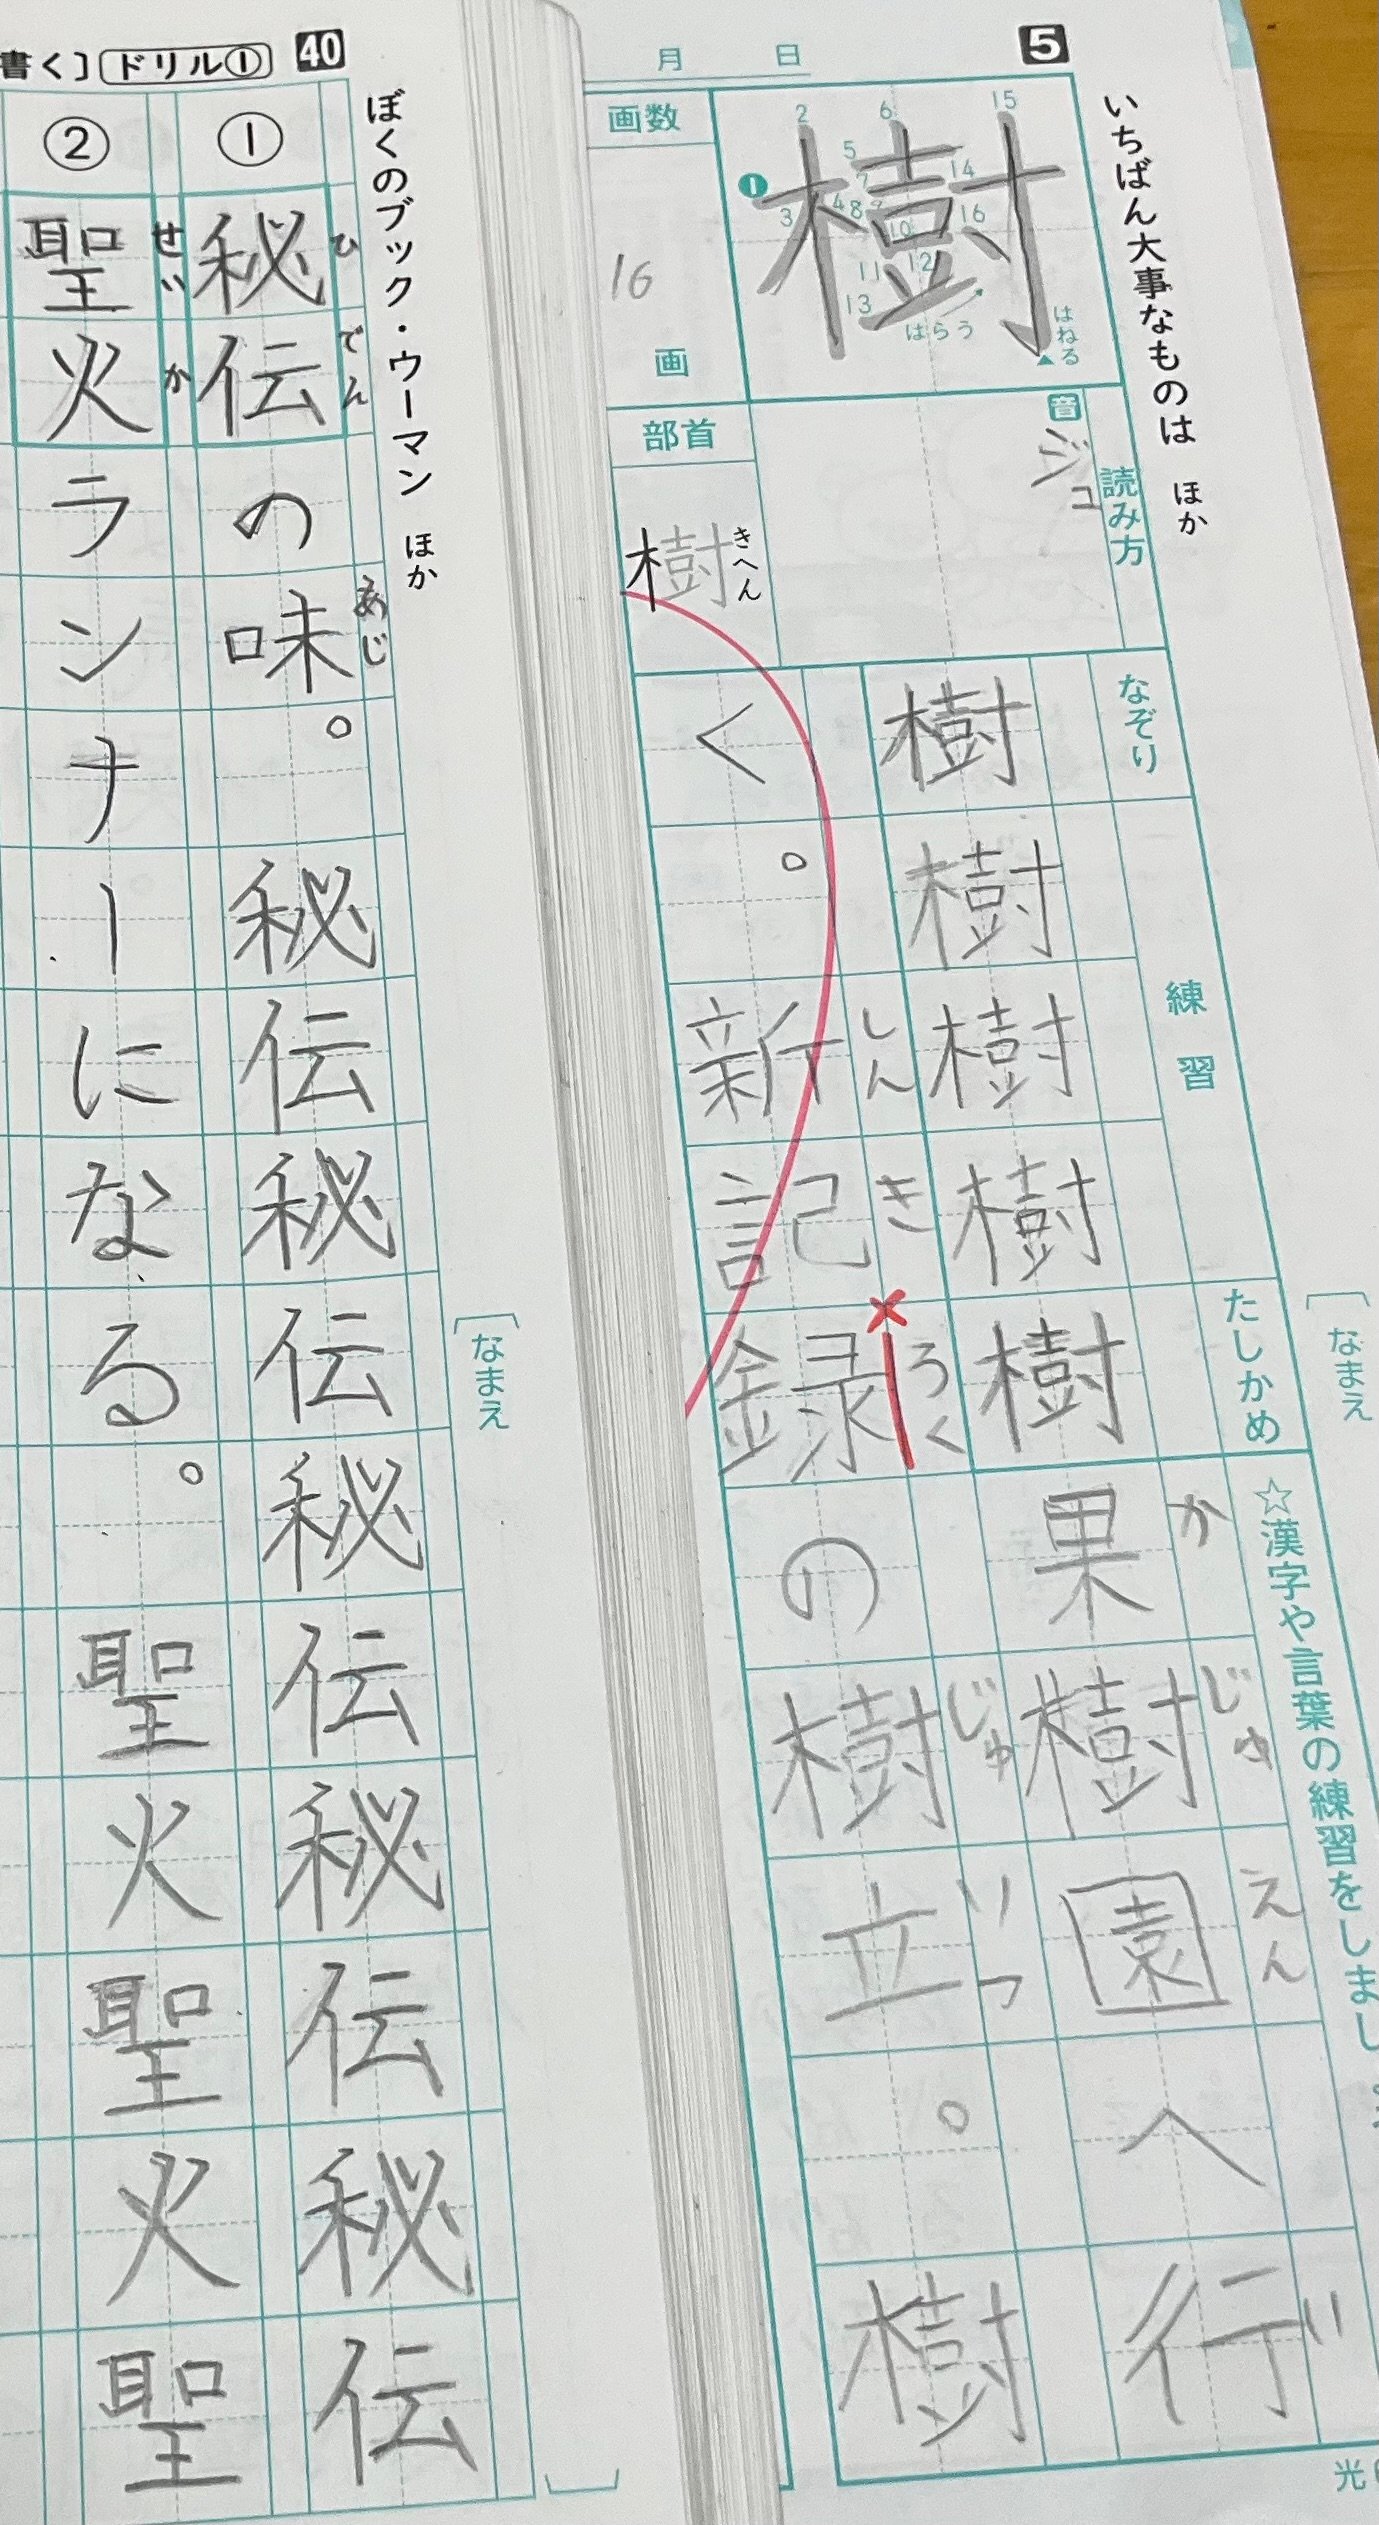 5
いちばん大事なものは ほか
月 日
樹
1 2 3 4 5 6 7 8 9 10 11 12 13 14 15 16
はらう
はねる
画数
16
画
読み方
音
ジュ
部首
樹
きへん
なぞり
練習
たしかめ
〔なまえ
☆漢字や言葉の練習をしまし
樹樹樹樹樹果樹園へ行
か じゅ えん い
く。新記録の樹立。樹
しん き ろく じゅ りつ
光
40
書く〕ドリル①
ぼくのブック・ウーマン ほか
〔なまえ
①
秘伝の味。秘伝秘伝秘伝秘伝秘伝
ひ でん あじ
②
聖火ランナーになる。聖火聖火聖
せい か